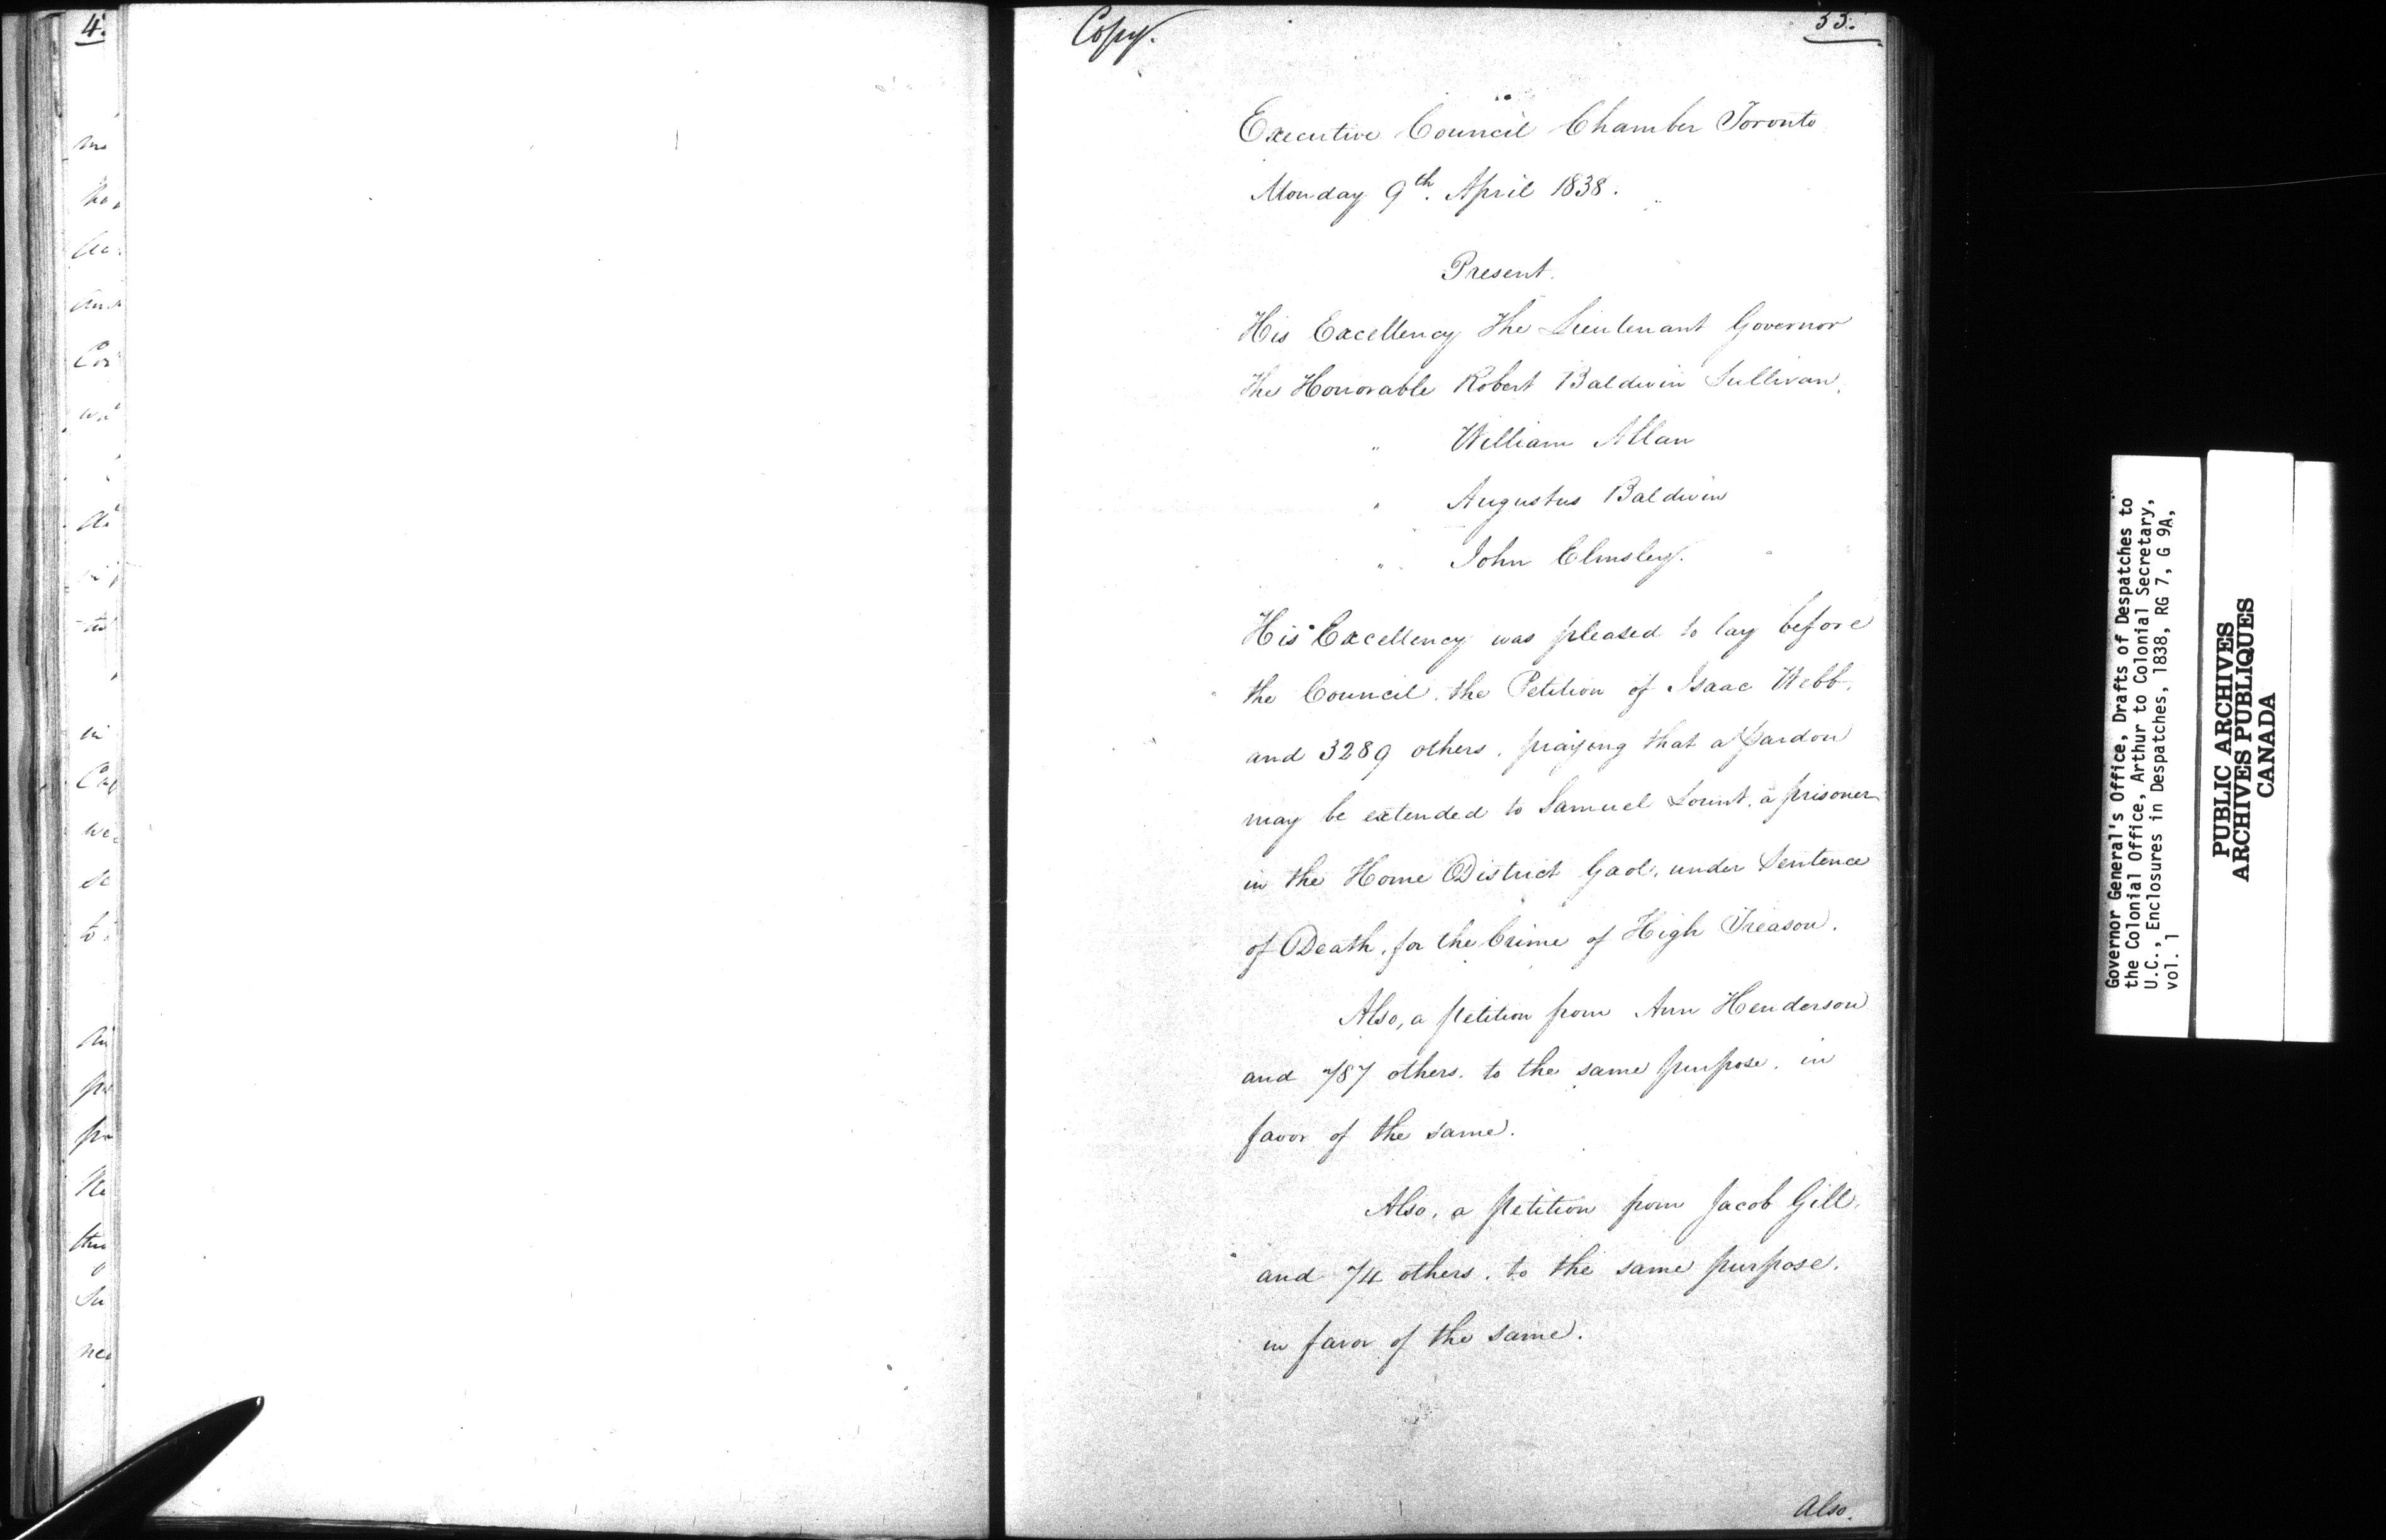 4.
Copy.
33.
Executive Council Chamber Toronto
Monday 9th. April 1838.
Present.
His Excellency The Lieutenant Governor
The Honorable Robert Baldwin Sullivan,
" William Allan
" Augustus Baldwin
" John Elmsley.
His Excellency was pleased to lay before
the Council, the Petition of Isaac Webb,
and 3289 others, praying that a Pardon
may be extended to Samuel Lount, a prisoner
in the Home District Gaol, under Sentence
of Death, for the Crime of High Treason.
Also, a petition from Ann Henderson
and 787 others, to the same purpose, in
favor of the same.
Also, a petition from Jacob Gill,
and 74 others, to the same purpose,
in favor of the same.
Also.
Governor General's Office, Drafts of Despatches to
the Colonial Office, Arthur to Colonial Secretary,
U.C., Enclosures in Despatches, 1838, RG 7, G 9A,
vol. 1
PUBLIC ARCHIVES
ARCHIVES PUBLIQUES
CANADA